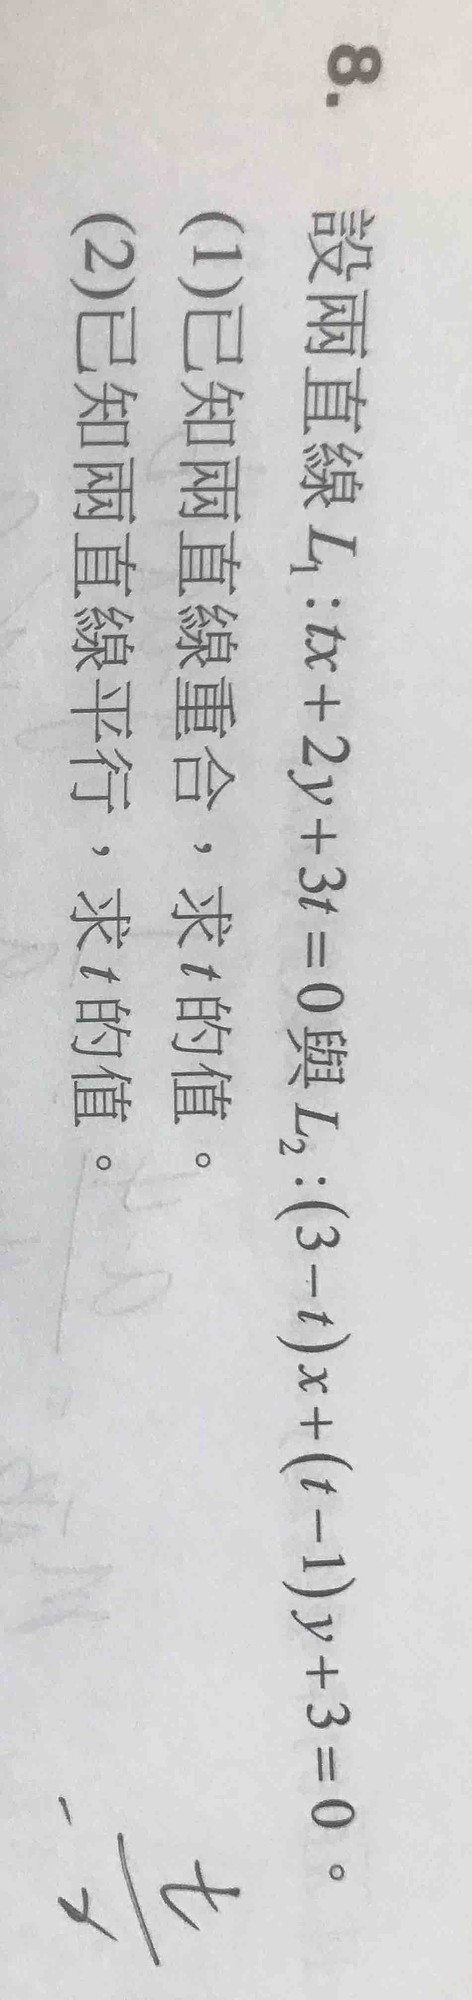 8. 設兩直線 L₁:tx+2y+3t=0與L₂:(3-t)x+(t-1)y+3=0。
(1)已知兩直線重合,求t的值。
(2)已知兩直線平行,求t的值。